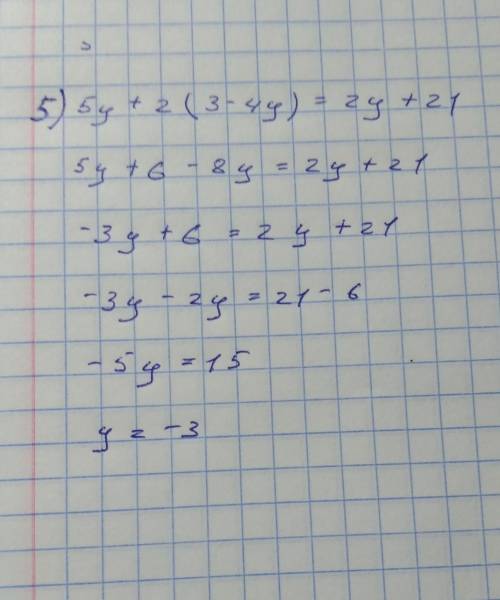 5) 5y + 2 ( 3 - 4y ) = 2y + 21
5y + 6 - 8y = 2y + 21
-3y + 6 = 2y + 21
-3y - 2y = 21 - 6
-5y = 15
y = -3